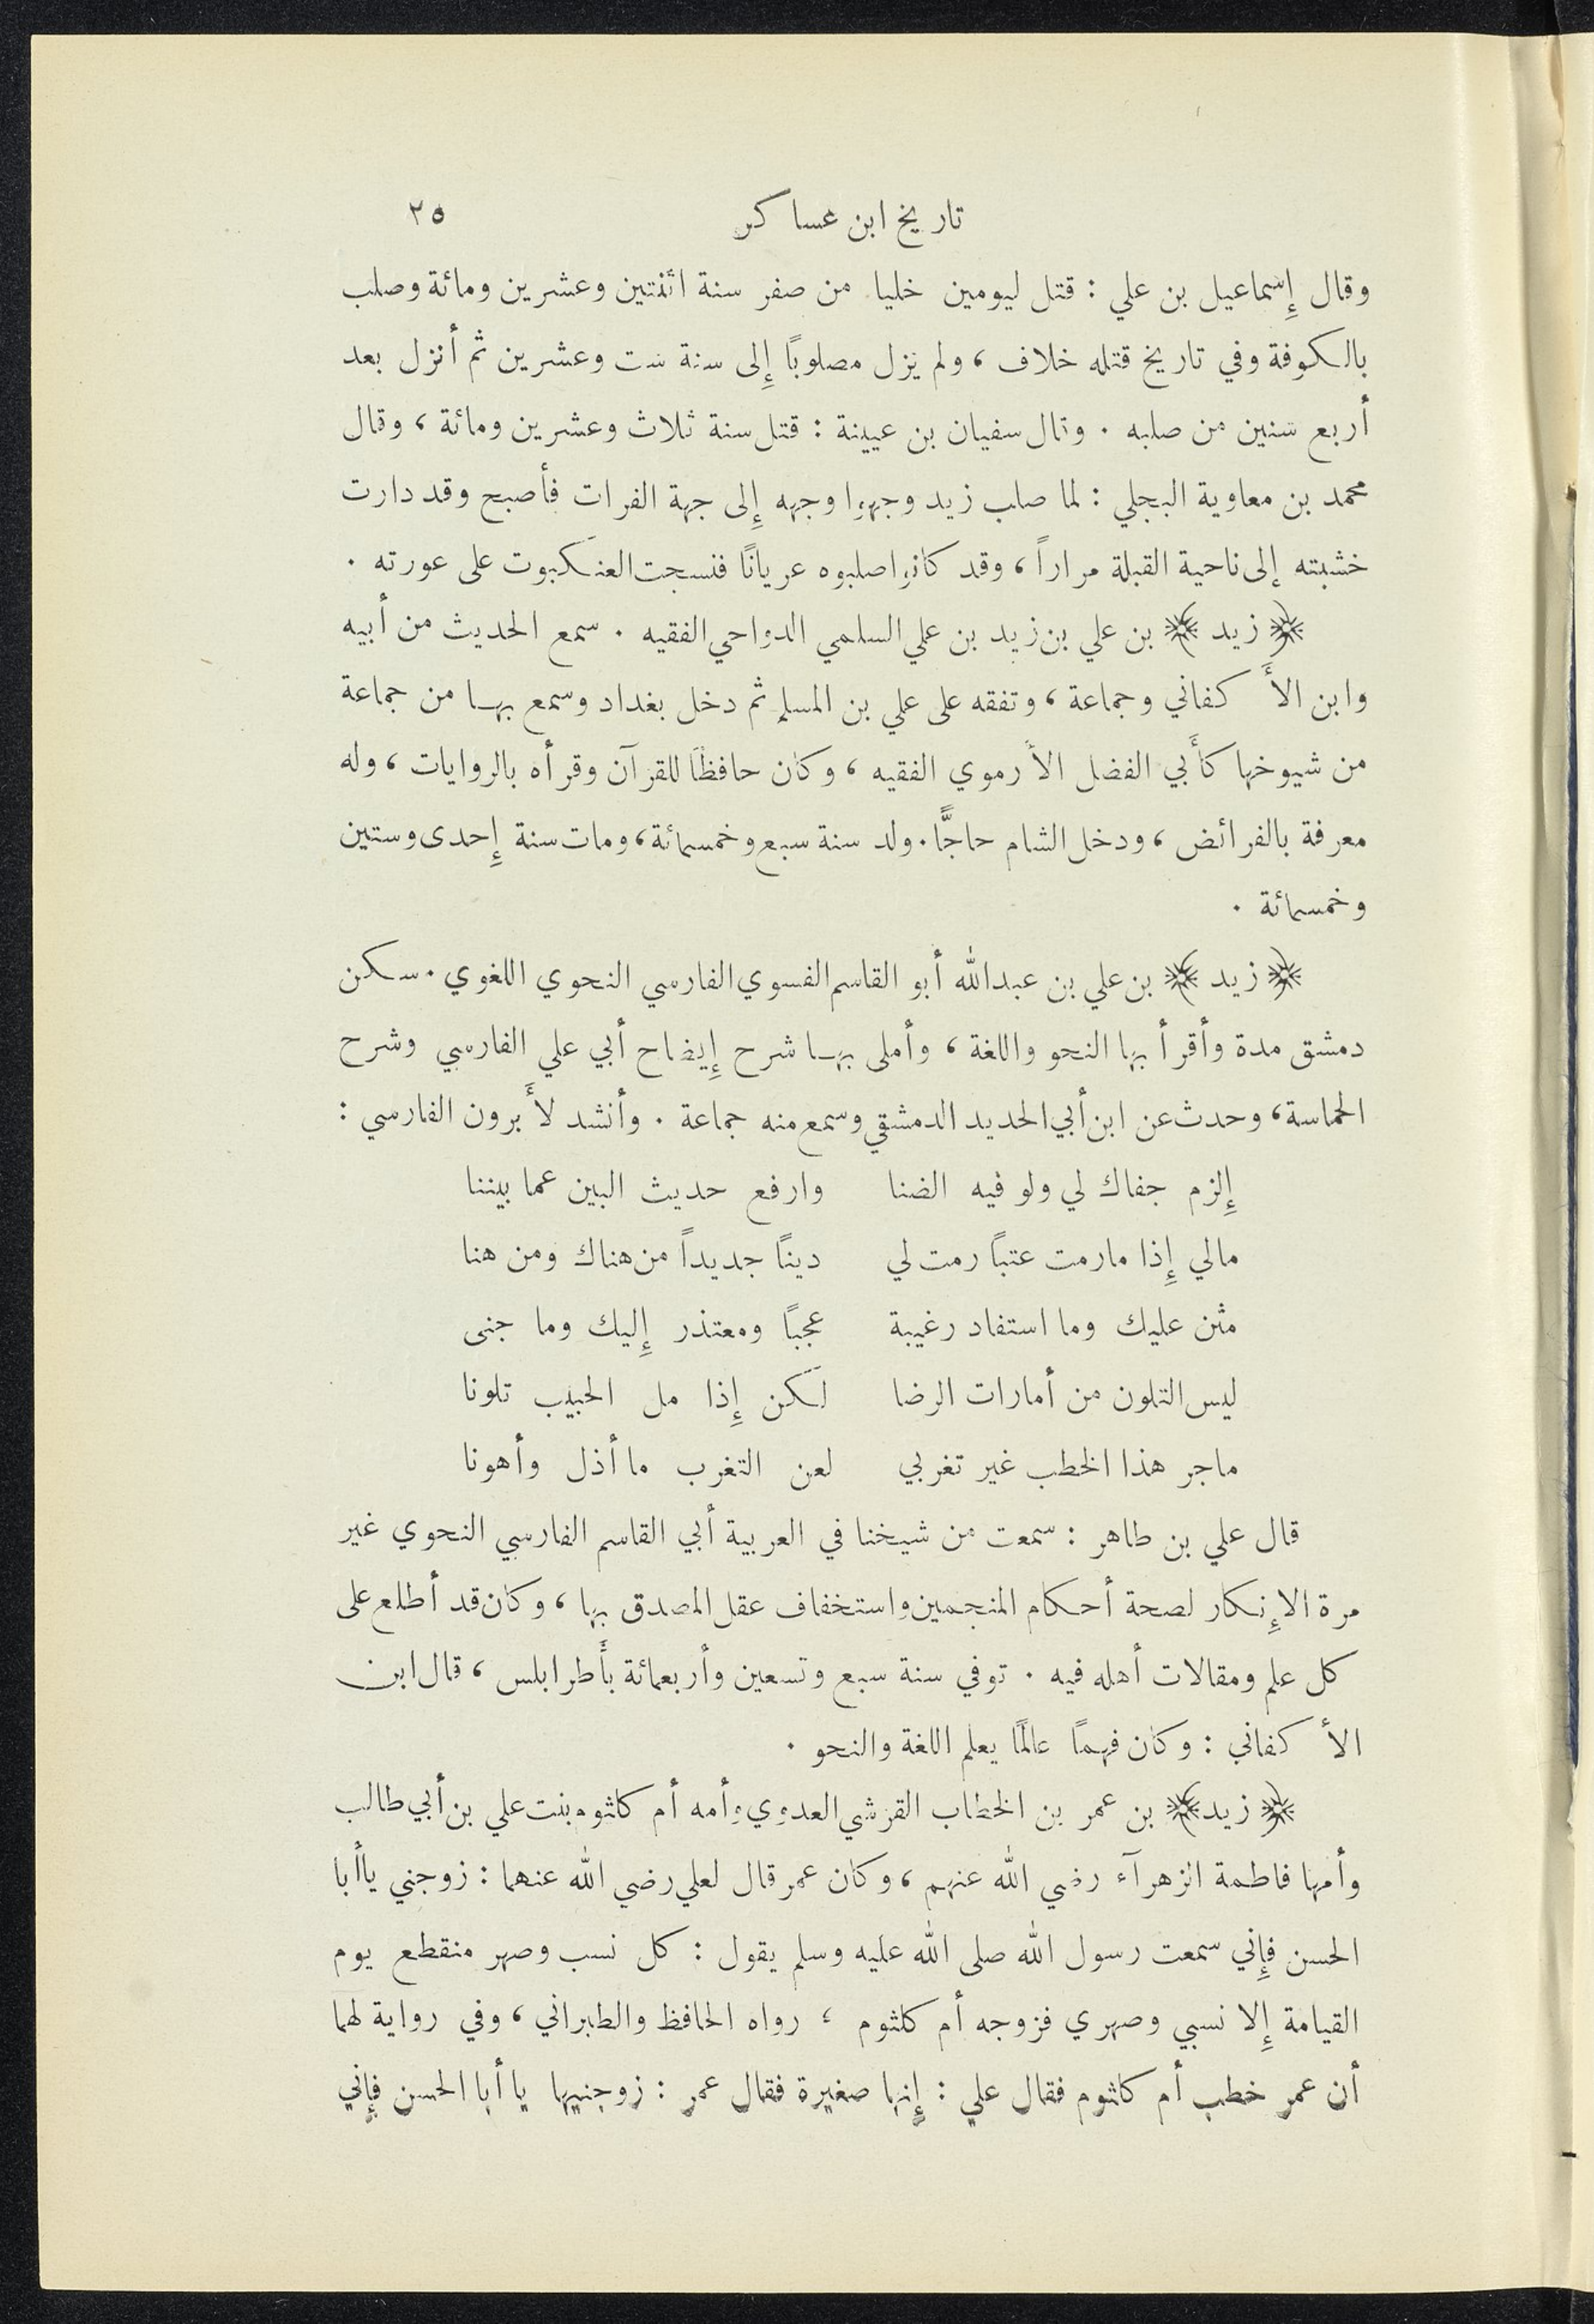 تاريخ ابن عساكر ٢٥
وقال إِسماعيل بن علي : قتل ليومين خليا من صفر سنة اثنتين وعشرين ومائة وصلب
بالكوفة وفي تاريخ قتله خلاف ، ولم يزل مصلوبًا إِلى سنة ست وعشرين ثم أنزل بعد
أربع سنين من صلبه . وقال سفيان بن عيينة : قتل سنة ثلاث وعشرين ومائة ، وقال
محمد بن معاوية البجلي : لما صلب زيد وجهوا وجهه إِلى جهة الفرات فأصبح وقد دارت
خشبته إلى ناحية القبلة مراراً ، وقد كانوا صلبوه عريانًا فنسجت العنكبوت على عورته .
﴿ زيد ﴾ بن علي بن زيد بن علي السلمي الدواحي الفقيه . سمع الحديث من أبيه
وابن الأَ كفاني وجماعة ، وتفقه على علي بن المسلم ثم دخل بغداد وسمع بها من جماعة
من شيوخها كأَبي الفضل الأرموي الفقيه ، وكان حافظًا للقرآن وقرأه بالروايات ، وله
معرفة بالفرائض ، ودخل الشام حاجًّا . ولد سنة سبع وخمسمائة ، ومات سنة إِحدى وستين
وخمسمائة .
﴿ زيد ﴾ بن علي بن عبد الله أبو القاسم الفسوي الفارسي النحوي اللغوي . سكن
دمشق مدة وأقرأ بها النحو واللغة ، وأملى بها شرح إِيضاح أبي علي الفارسي وشرح
الحماسة ، وحدث عن ابن أبي الحديد الدمشقي وسمع منه جماعة . وأنشد لأَبرون الفارسي :
إِلزم جفاك لي ولو فيه الضنا وارفع حديث البين عما بيننا
مالي إِذا مارمت عتبًا رمت لي دينًا جديداً من هناك ومن هنا
مثن عليك وما استفاد رغيبة عجبًا ومعتذر إِليك وما جنى
ليس التلون من أمارات الرضا لكن إِذا مل الحبيب تلونا
ماجر هذا الخطب غير تغربي لعن التغرب ما أذل وأهونا
قال علي بن طاهر : سمعت من شيخنا في العربية أبي القاسم الفارسي النحوي غير
مرة الإِنكار لصحة أحكام المنجمين واستخفاف عقل المصدق بها ، وكان قد أطلع على
كل علم ومقالات أهله فيه . توفي سنة سبع وتسعين وأربعمائة بأَطرابلس ، قال ابن
الأ كفاني : وكان فهمًا عالمًا يعلم اللغة والنحو .
﴿ زيد ﴾ بن عمر بن الخطاب القرشي العدوي وأمه أم كلثوم بنت علي بن أبي طالب
وأمها فاطمة الزهرآء رضي الله عنهم ، وكان عمر قال لعلي رضي الله عنهما : زوجني ياأبا
الحسن فإِني سمعت رسول الله صلى الله عليه وسلم يقول : كل نسب وصهر منقطع يوم
القيامة إِلا نسبي وصهري فزوجه أم كلثوم ، رواه الحافظ والطبراني ، وفي رواية لهما
أن عمر خطب أم كلثوم فقال علي : إِنها صغيرة فقال عمر : زوجنيها يا أبا الحسن فإِني